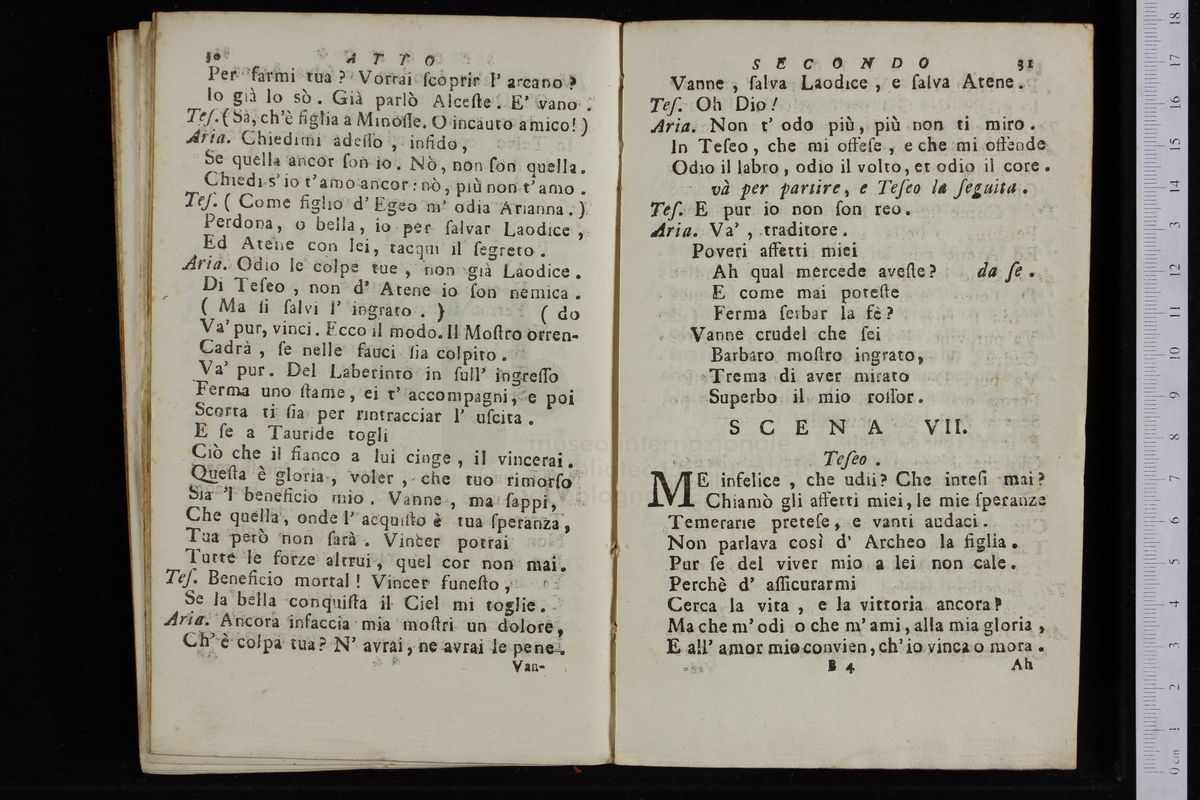 30 ATTO
Per farmi tua? Vorrai ſcoprir l' arcano?
Io già lo sò. Già parlò Alceſte. E' vano.
Teſ. (Sà, ch'è figlia a Minoſſe. O incauto amico!)
Aria. Chiedimi adeſſo, infido,
Se quella ancor ſon io. Nò, non ſon quella.
Chiedi s' io t'amo ancor: nò, più non t'amo.
Teſ. (Come figlio d' Egeo m' odia Arianna.)
Perdona, o bella, io per ſalvar Laodice,
Ed Atene con lei, tacqui il ſegreto.
Aria. Odio le colpe tue, non già Laodice.
Di Teſeo, non d' Atene io ſon nemica.
(Ma ſi ſalvi l' ingrato.) (do
Va' pur, vinci. Ecco il modo. Il Moſtro orren-
Cadrà, ſe nelle fauci ſia colpito.
Va' pur. Del Laberinto in ſull' ingreſſo
Ferma uno ſtame, ei t' accompagni, e poi
Scorta ti ſia per rintracciar l' uſcita.
E ſe a Tauride togli
Ciò che il fianco a lui cinge, il vincerai.
Queſta è gloria, voler, che tuo rimorſo
Sia 'l beneficio mio. Vanne, ma ſappi,
Che quella, onde l' acquiſto è tua ſperanza,
Tua però non ſarà. Vincer potrai
Tutte le forze altrui, quel cor non mai.
Teſ. Beneficio mortal! Vincer funeſto,
Se la bella conquiſta il Ciel mi toglie.
Aria. Ancora infaccia mia moſtri un dolore,
Ch' è colpa tua? N' avrai, ne avrai le pene.
Van-
SECONDO 31
Vanne, ſalva Laodice, e ſalva Atene.
Teſ. Oh Dio!
Aria. Non t' odo più, più non ti miro.
In Teſeo, che mi offeſe, e che mi offende
Odio il labro, odio il volto, et odio il core.
và per partire, e Teſeo la ſeguita.
Teſ. E pur io non ſon reo.
Aria. Va', traditore.
Poveri affetti miei
Ah qual mercede aveſte? da ſe.
E come mai poteſte
Ferma ſerbar la fè?
Vanne crudel che ſei
Barbaro moſtro ingrato,
Trema di aver mirato
Superbo il mio roſſor.
SCENA VII.
Teſeo.
ME infelice, che udii? Che inteſi mai?
Chiamò gli affetti miei, le mie ſperanze
Temerarie preteſe, e vanti audaci.
Non parlava così d' Archeo la figlia.
Pur ſe del viver mio a lei non cale.
Perchè d' aſſicurarmi
Cerca la vita, e la vittoria ancora?
Ma che m' odi o che m' ami, alla mia gloria,
E all' amor mio convien, ch' io vinca o mora.
B 4 Ah